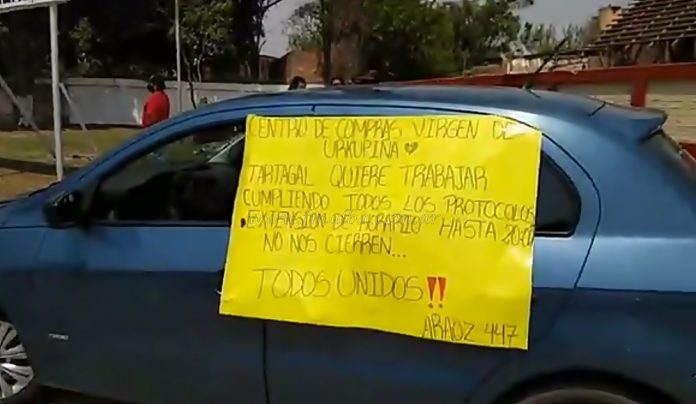 CENTRO DE COMPRAS VIRGEN DE
URKUPIÑA
TARTAGAL QUIERE TRABAJAR
CUMPLIENDO TODOS LOS PROTOCOLOS
EXTENSION DE HORARIO HASTA 20:00
NO NOS CIERREN...
TODOS UNIDOS!!
ARAOZ 447